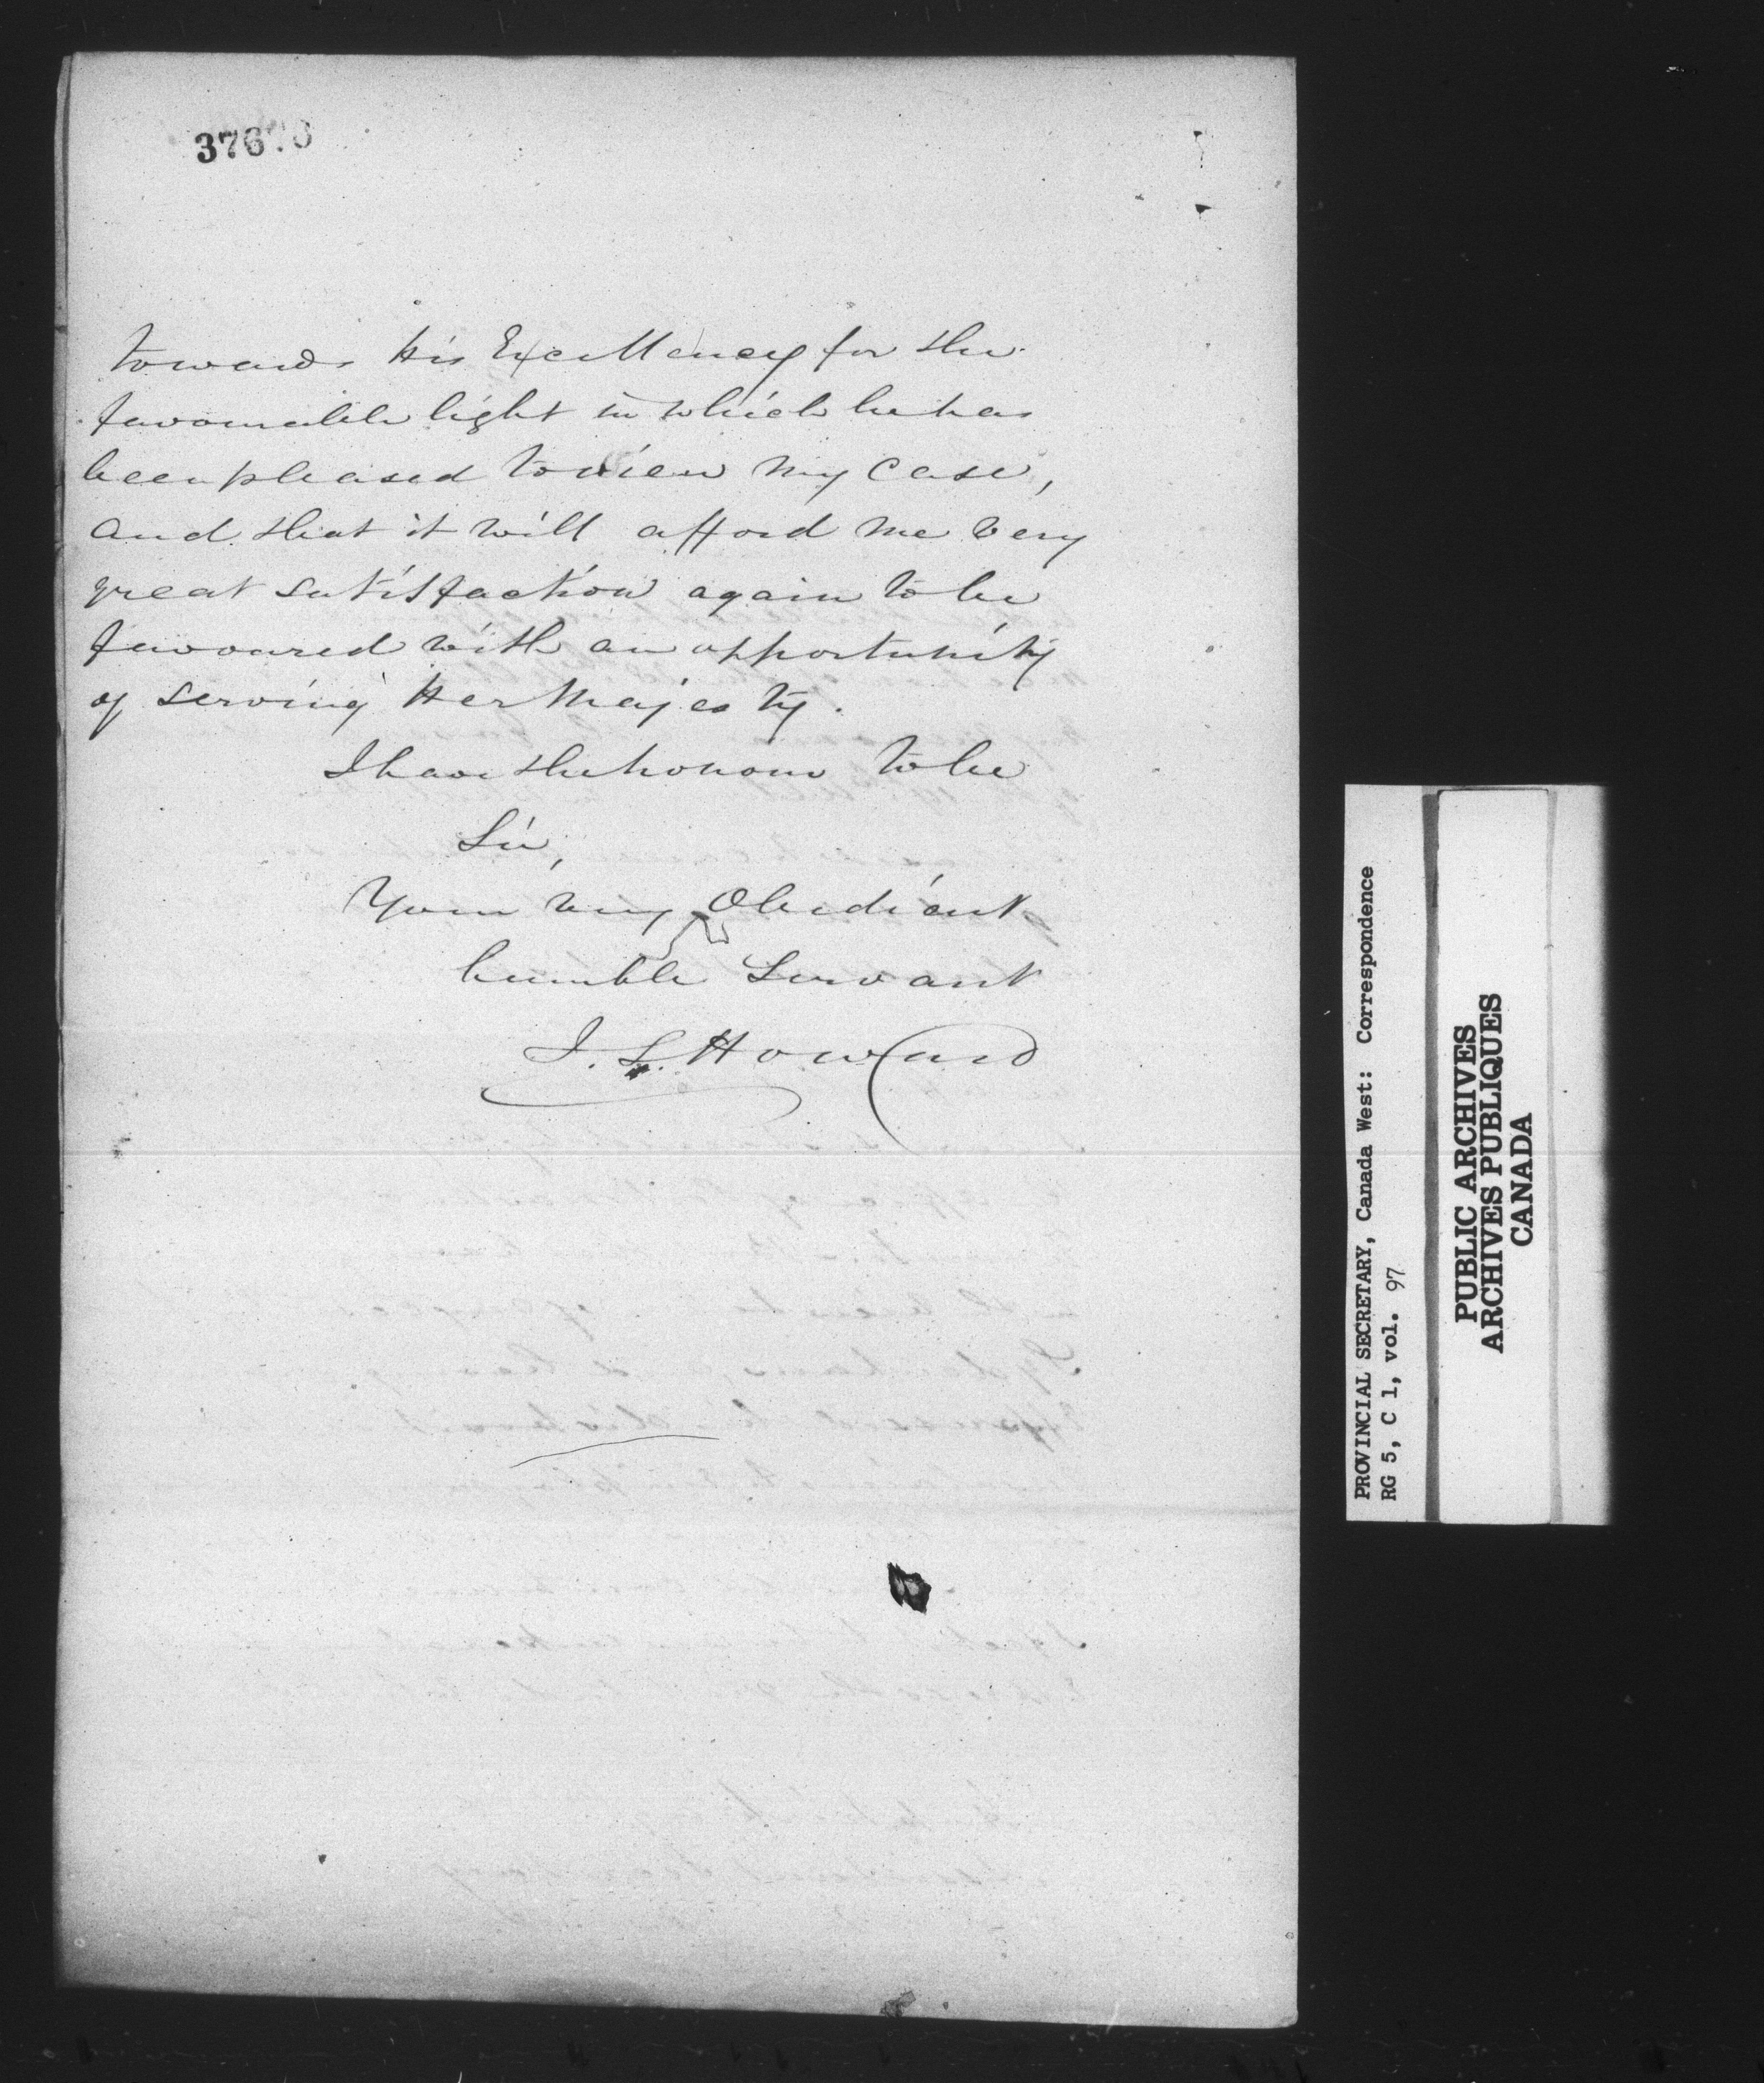 towards His Excellency for the
favourable light in which he has
been pleased to view my case,
and that it will afford me very
great satisfaction again to be
favoured with an opportunity
of serving Her Majesty.
I have the honour to be
Sir,
Your very Obedient
humble Servant
J. S. Howard
PROVINCIAL SECRETARY, Canada West: Correspondence
RG 5, C 1, vol. 97
PUBLIC ARCHIVES
ARCHIVES PUBLIQUES
CANADA